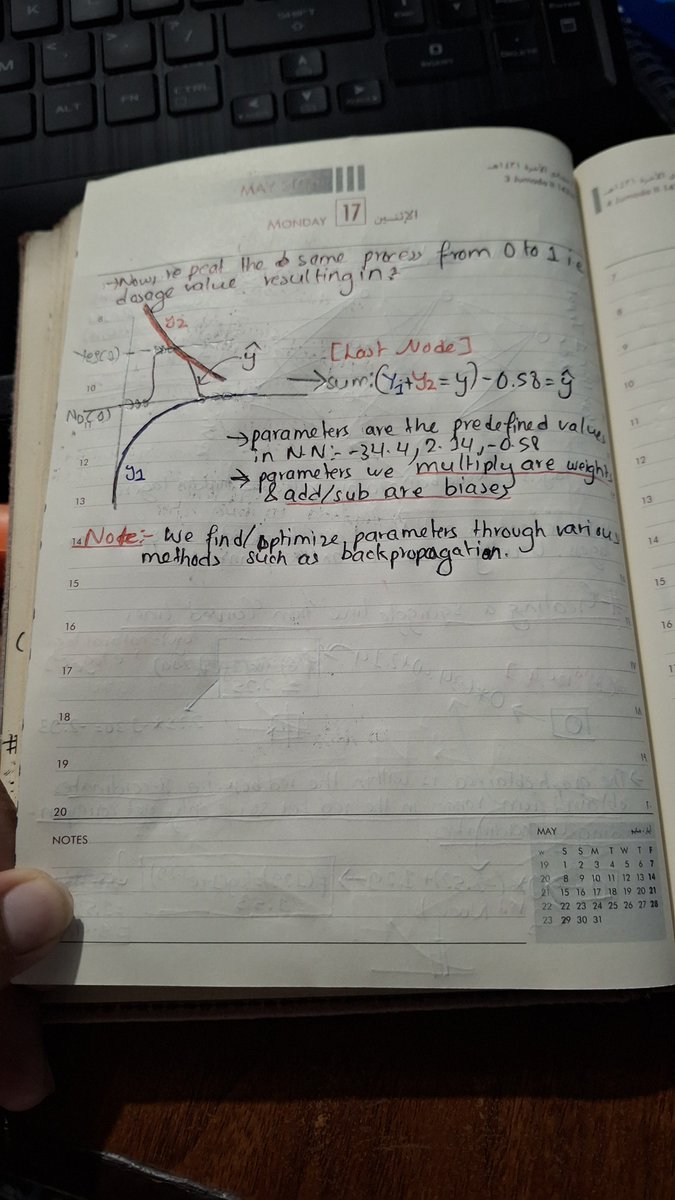 SHIFT
CTRL
ALT
FN
MAY
MONDAY 17 الاثنين
3 Jumada II
→Now, repeat the same process from 0 to 1 i.e
dosage value. resulting in:
8
y2
Yes(1)
ŷ
[Last Node]
→sum:(y1+y2=y)-0.58=ŷ
10
No(0)
11
→parameters are the predefined values
in N.N:- -34.4, 2.14, -0.58
12
y1
→ parameters we multiply are weights
& add/sub are biases
13
14 Note:- We find/optimize parameters through various
methods such as backpropagation.
15
16
17
18
19
20
NOTES
MAY مايو
W S S M T W T F
19 1 2 3 4 5 6 7
20 8 9 10 11 12 13 14
21 15 16 17 18 19 20 21
22 22 23 24 25 26 27 28
23 29 30 31
7
8
9
10
11
12
13
14
15
16